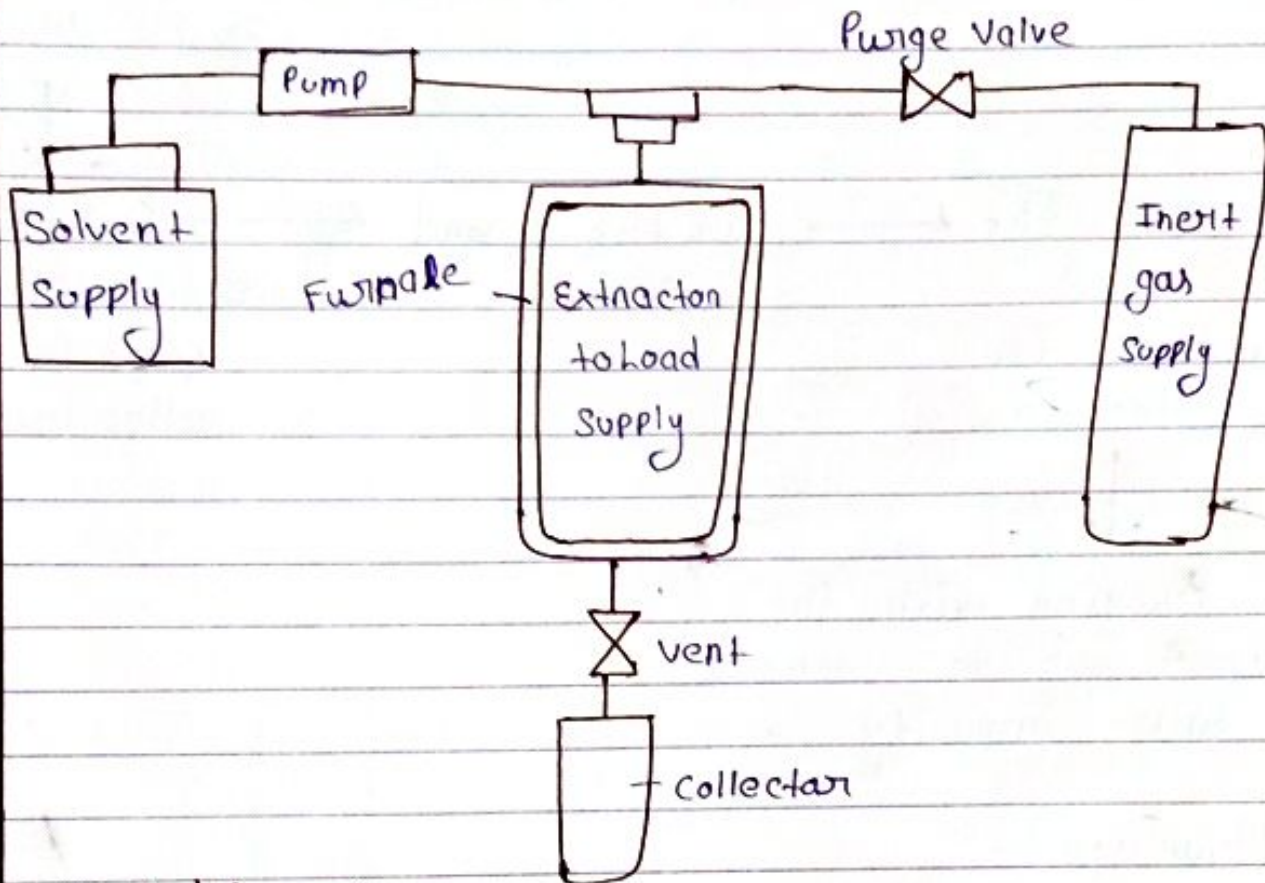 Purge Valve
Pump
Solvent
Supply
Furnale
Extracton
to Load
Supply
Inert
gas
Supply
vent
Collectar